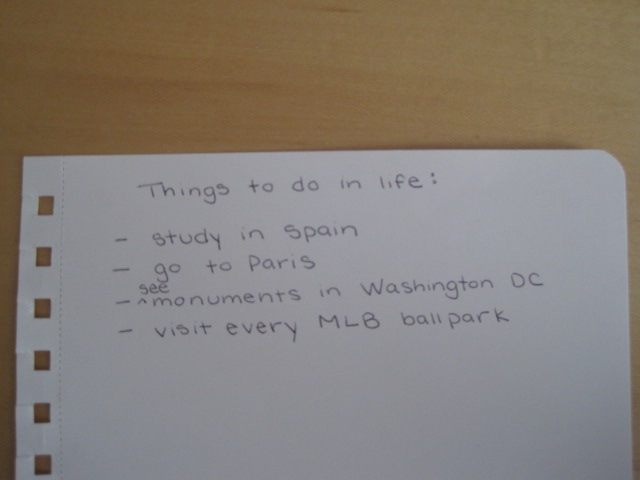 Things to do in life:
- study in Spain
- go to Paris
- see monuments in Washington DC
- visit every MLB ballpark